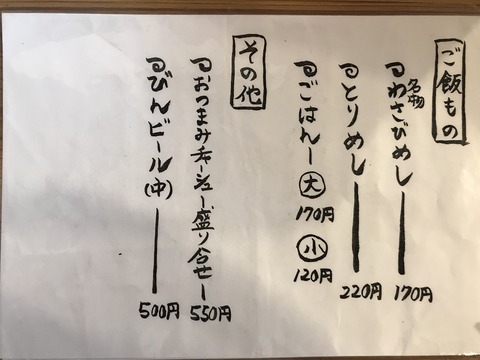 ご飯もの
名物わさびめし 170円
とりめし 220円
ごはんー 大 170円 小 120円
その他
おつまみチャーシュー盛り合せー 550円
びんビール(中) 500円